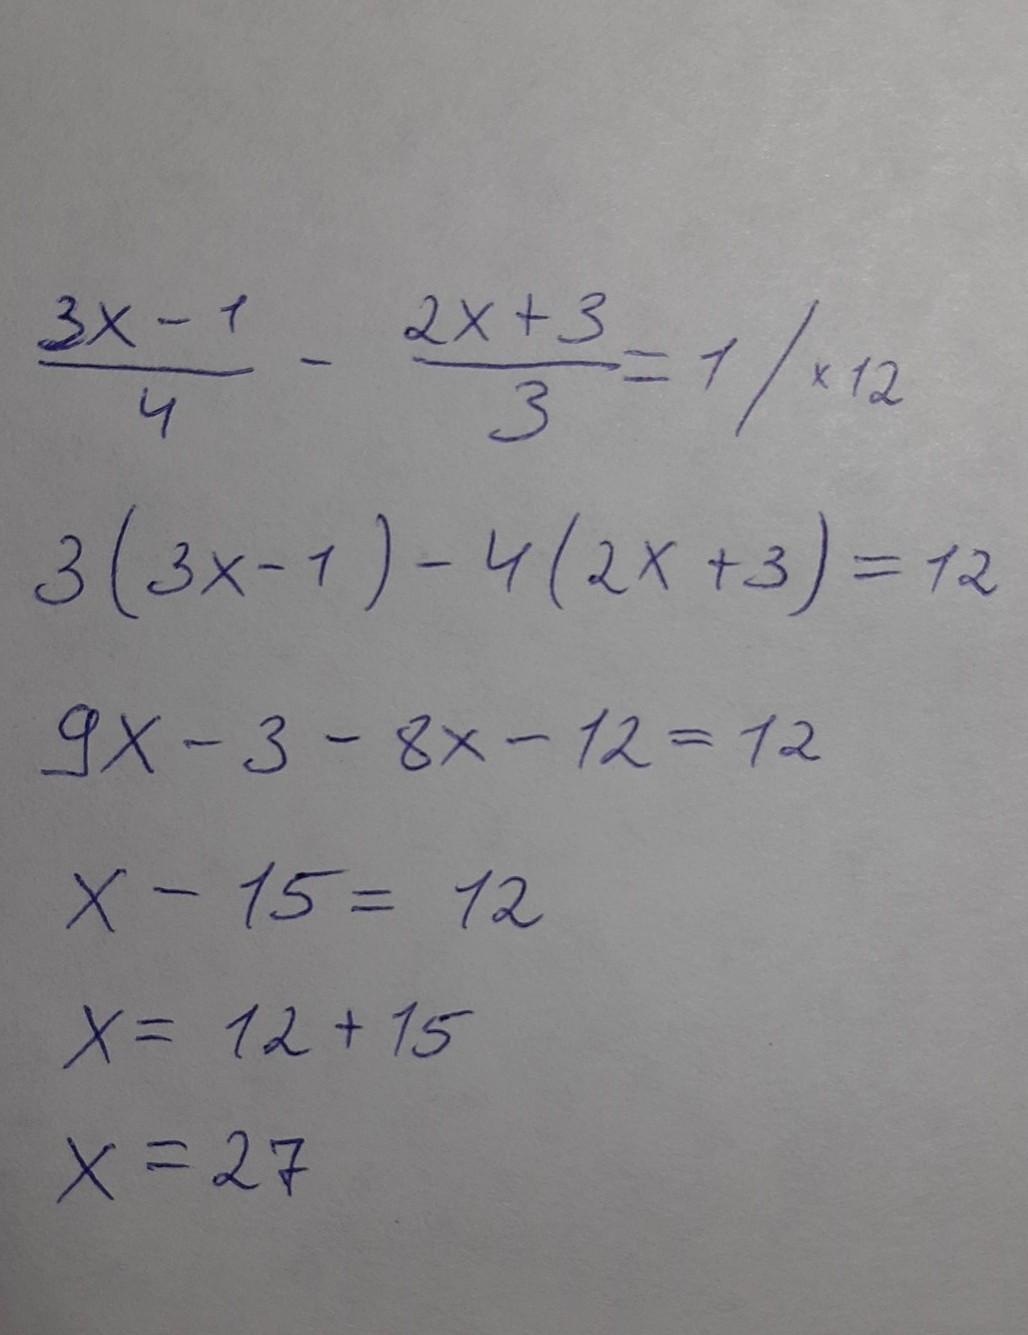 (3x - 1)/4 - (2x + 3)/3 = 1 / × 12
3(3x - 1) - 4(2x + 3) = 12
9x - 3 - 8x - 12 = 12
x - 15 = 12
x = 12 + 15
x = 27